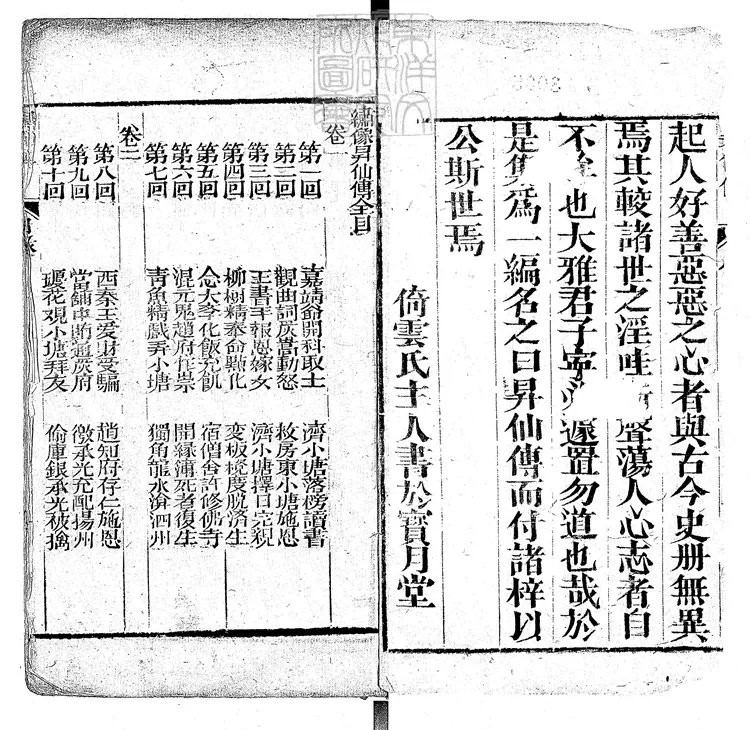 起人好善惡惡之心者與古今史册無異
焉其較諸世之淫哇 聲蕩人心志者自
不 也大雅君子寧 遽置勿道也哉於
是集爲一編名之曰昇仙傳而付諸梓以
公斯世焉
倚雲氏主人書於寶月堂
繡像昇仙傳全目
卷一
第一回 嘉靖爺開科取士 濟小塘落榜讀書
第二回 觀曲詞嚴嵩動怒 救房東小塘施恩
第三回 王書手報恩嫁女 濟小塘擇日完親
第四回 柳樹精奉命點化 変板櫈度脫濟生
第五回 念大李化飯充飢 宿僧舍許修佛寺
第六回 混元鬼趙府作祟 開緣簿死者復生
第七回 青魚精戲弄小塘 獨角龍水渰泗州
卷二
第八回 西秦王爱財受騙 趙知府存仁施恩
第九回 當舖中賍通嚴府 徼承光充配揚州
第十回 瓊花观小塘拜友 偷庫銀承光被擒